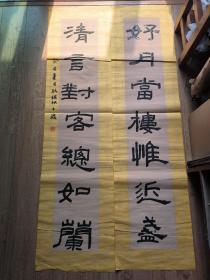 好月當樓惟近盞
清言對客總如蘭